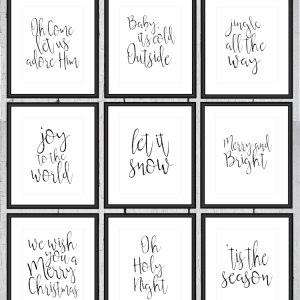 Oh Come
let us
adore Him
Baby,
it's cold
Outside
jingle
all the
way
joy
to the
world
let it
snow
Merry and
Bright
we wish
you a
Merry
Christmas
Oh
Holy
Night
'tis the
season